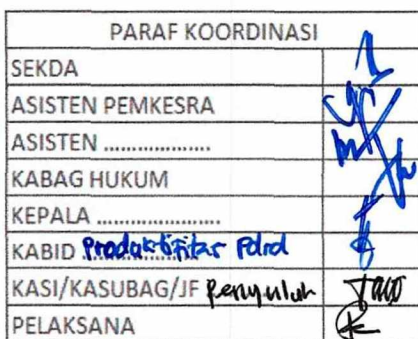 PARAF KOORDINASI
SEKDA
ASISTEN PEMKESRA
ASISTEN ...................
KABAG HUKUM
KEPALA ......................
KABID Produktifitas
KASI/KASUBAG/JF Penyuluh
PELAKSANA